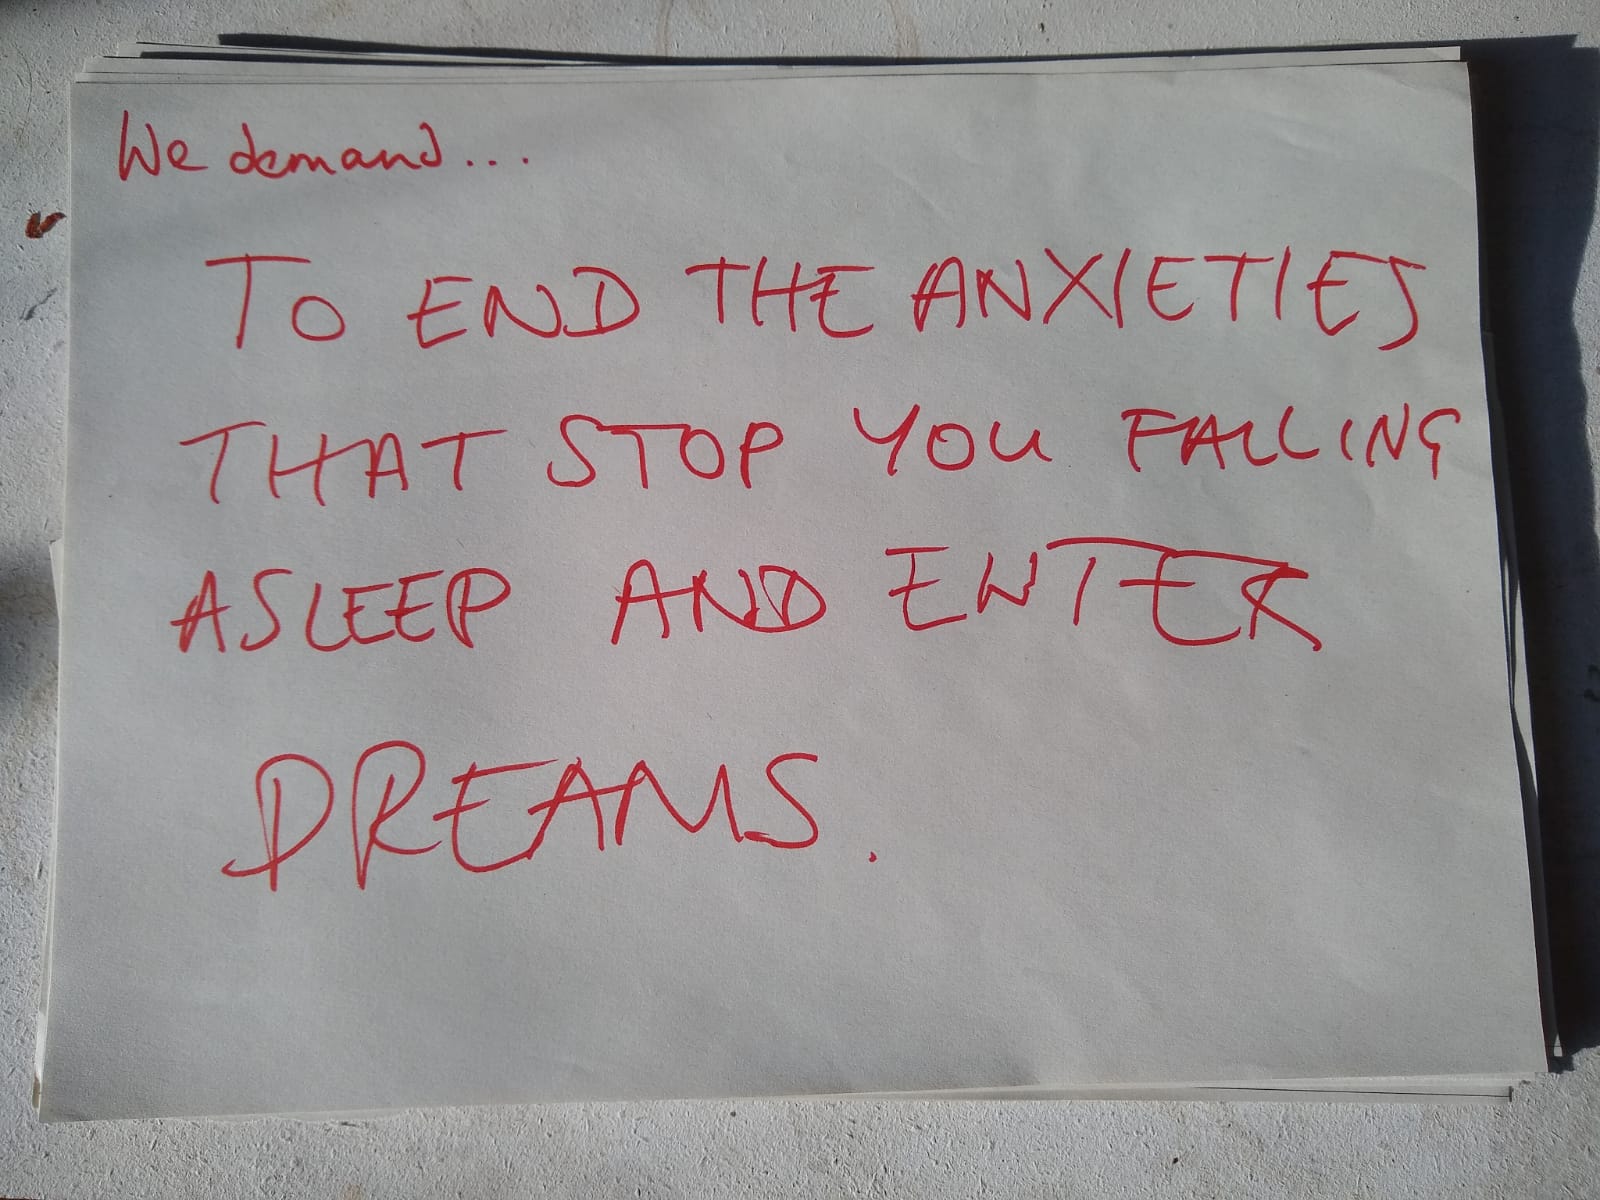 We demand...
TO END THE ANXIETIES
THAT STOP YOU FALLING
ASLEEP AND ENTER
DREAMS.